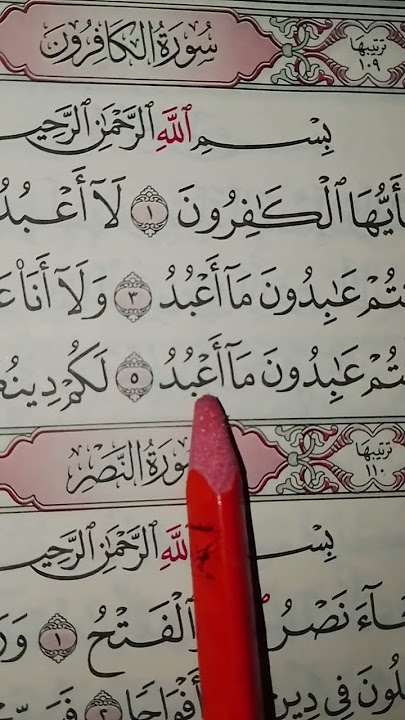 سُورَةُ الْكَافِرُونَ
تَرْتِيبُهَا ١٠٩
بِسْمِ ٱللَّهِ ٱلرَّحْمَٰنِ ٱلرَّحِي
أَيُّهَا ٱلْكَٰفِرُونَ ١ لَآ أَعْبُدُ
نتُمْ عَٰبِدُونَ مَآ أَعْبُدُ ٣ وَلَآ أَنَا۠ عَ
تُمْ عَٰبِدُونَ مَآ أَعْبُدُ ٥ لَكُمْ دِينُ
سُورَةُ النَّصْرِ
تَرْتِيبُهَا ١١٠
بِسْ للَّهِ ٱلرَّحْمَٰنِ ٱلرَّحِي
جَآءَ نَصْرُ ٱلْفَتْحُ ١ وَرَ
لُونَ فِي دِينِ أَفْوَاجًا ٢ فَسَبِّ